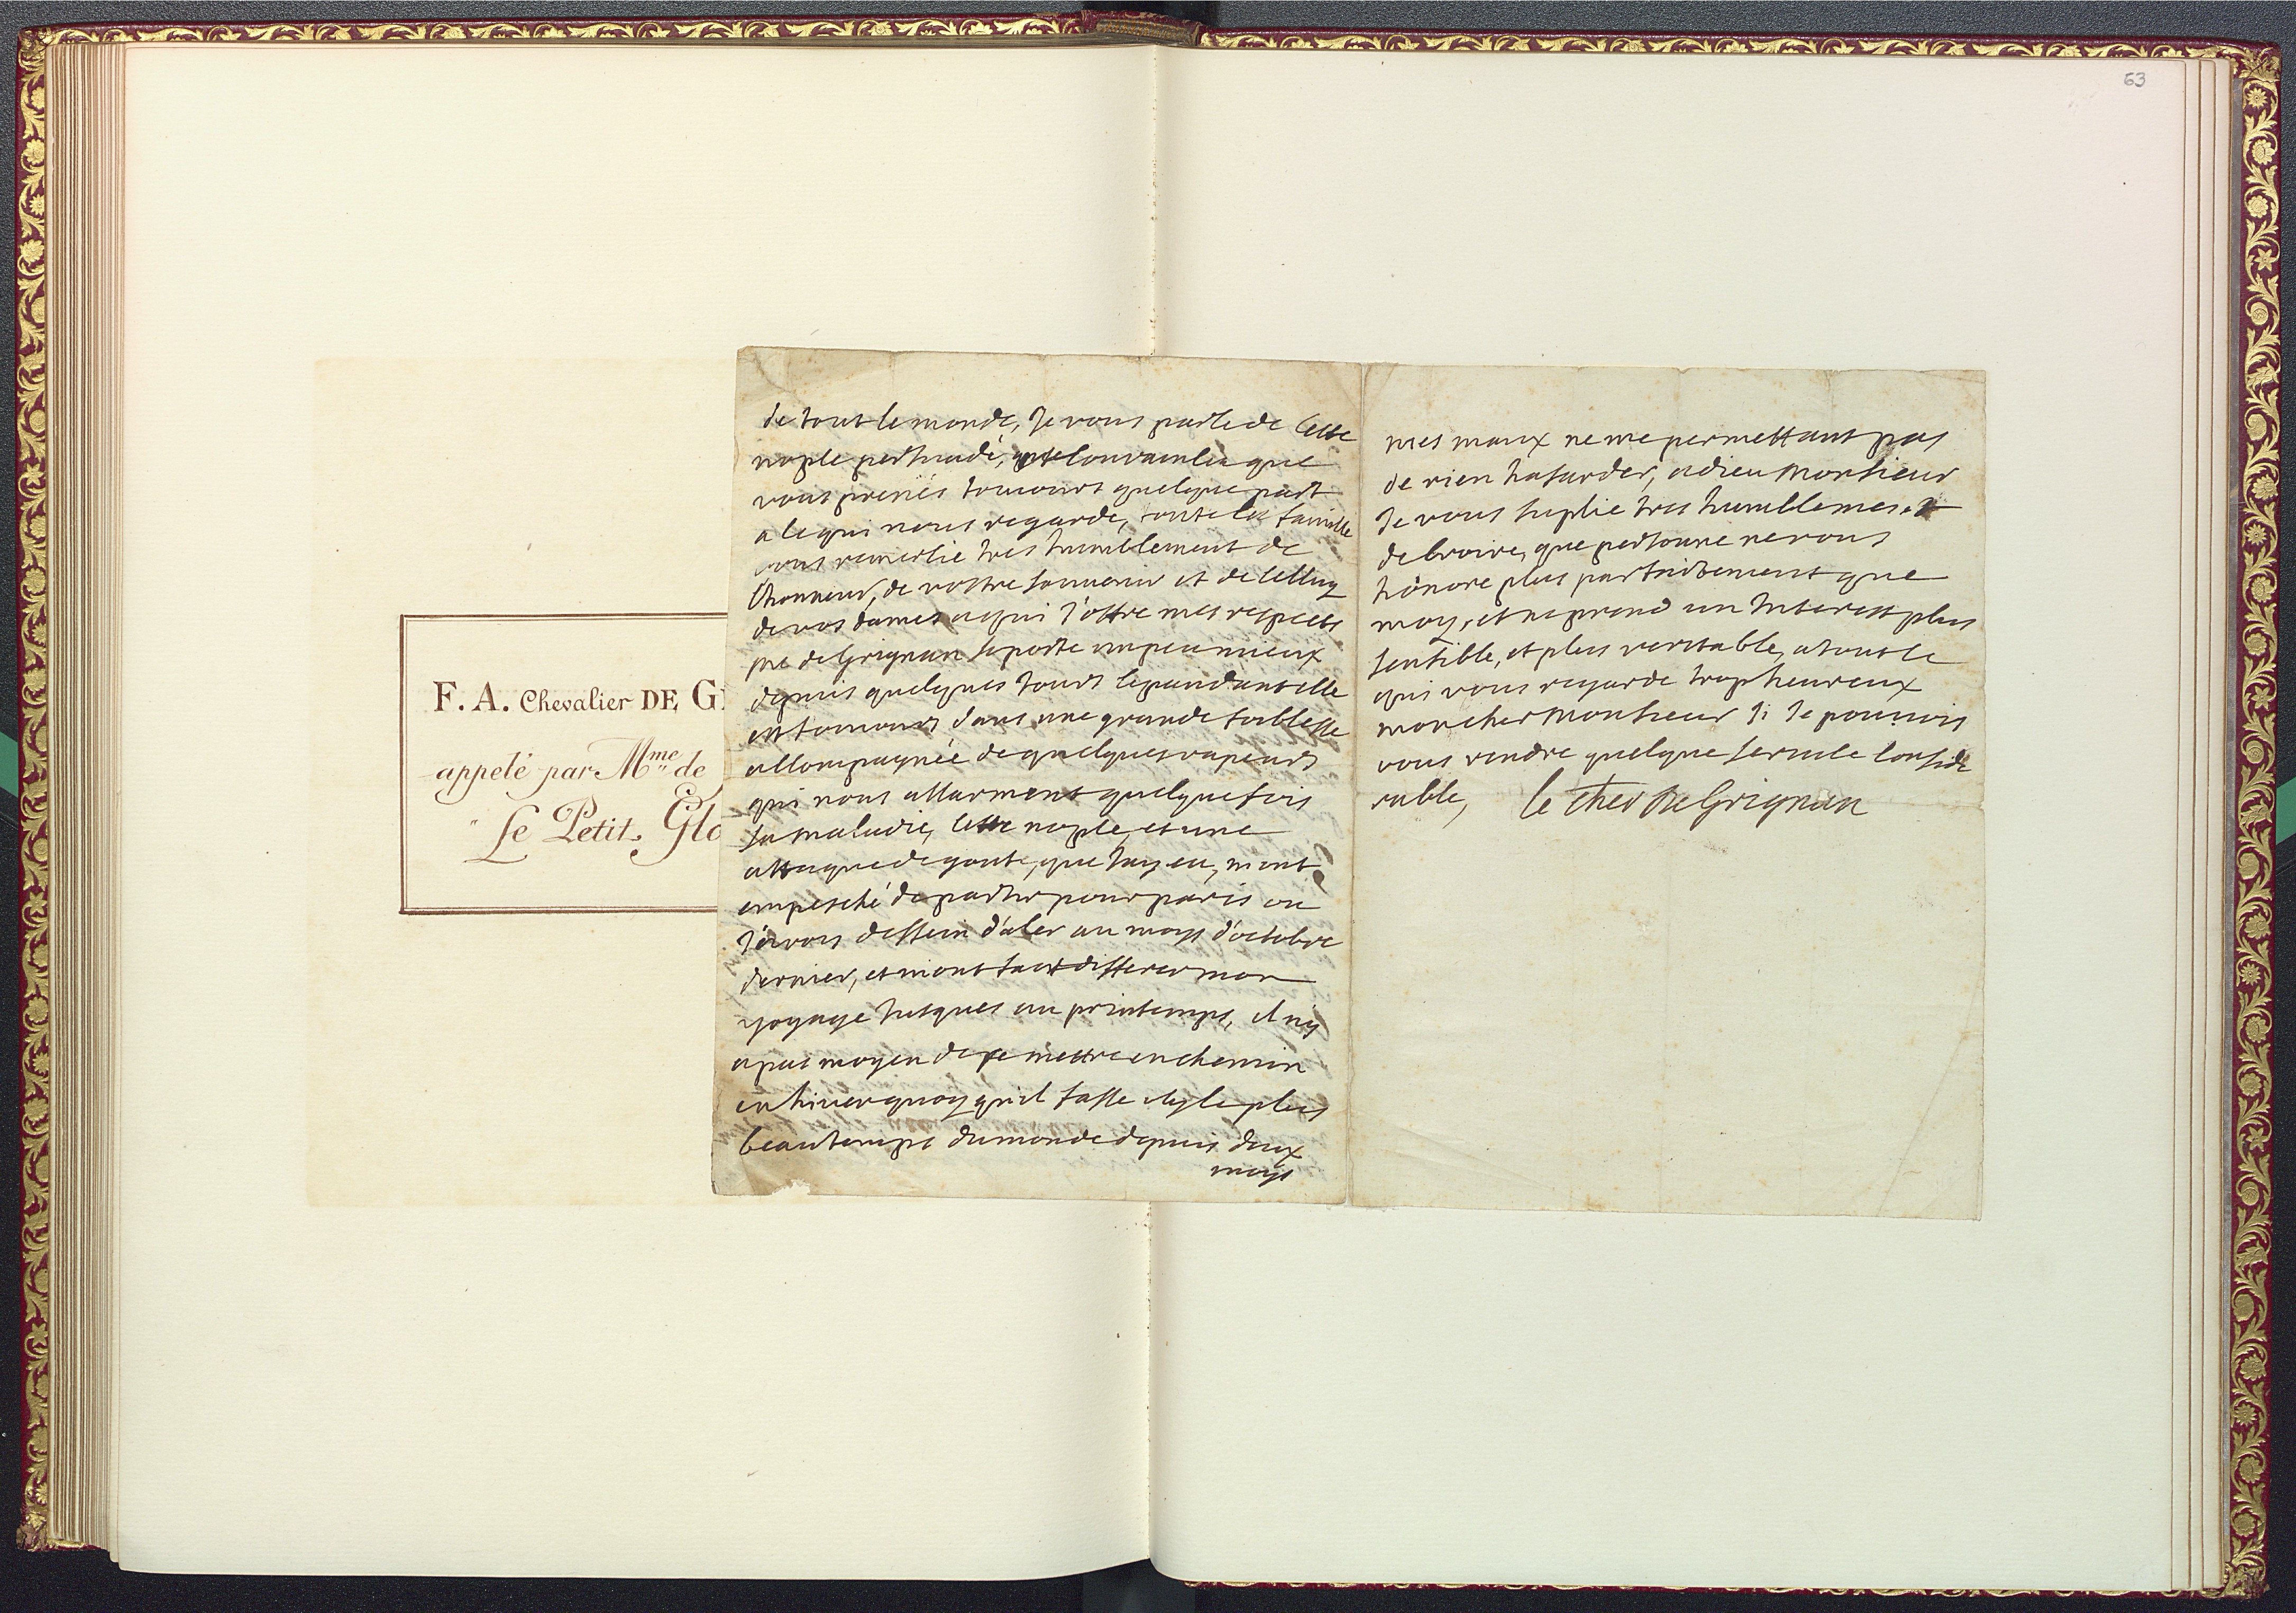 63
F. A. Chevalier DE G
appelé par Mme de
Le Petit Glo
de tout le monde, Je vous parle de cette
nople persuadé, convaincu que
vous prenés tousiours quelque part
a ce qui nous regarde, toute la famille
vous remercie tres humblement de
lhonneur, de vostre souvenir et de celluy
de vos dames aqui J'offre mes respects
me de Grignan se porte un peu mieux
depuis quelques Jours cepandant elle
est tousiours dans une grande foiblesse
accompagnée de quelques vapeurs
qui nous allarment quelque fois
sa maladie, cette nople, et une
attaque de goute, que Jay eu, mont
empesché de partir pour paris ou
J'avois dessein d'aler au moys d'octobre
dernier, et mont fait differer mon
voyage Jusques au printemps, il ny
a pas moyen de se mettre en chemin
en hiver quoy qu'il fasse icy le plus
beau temps du monde depuis deux
moys
mes maux ne me permettant pas
de rien hasarder, adieu Monsieur
Je vous suplie tres humblement
de croire, que personne ne vous
honore plus parfaitement que
moy, et ne prend un Interest plus
sensible, et plus veritable, a tout ce
qui vous regarde trop heureux
mon cher Monsieur si Je pouvois
vous rendre quelque service conside
rable, le cher de Grignan